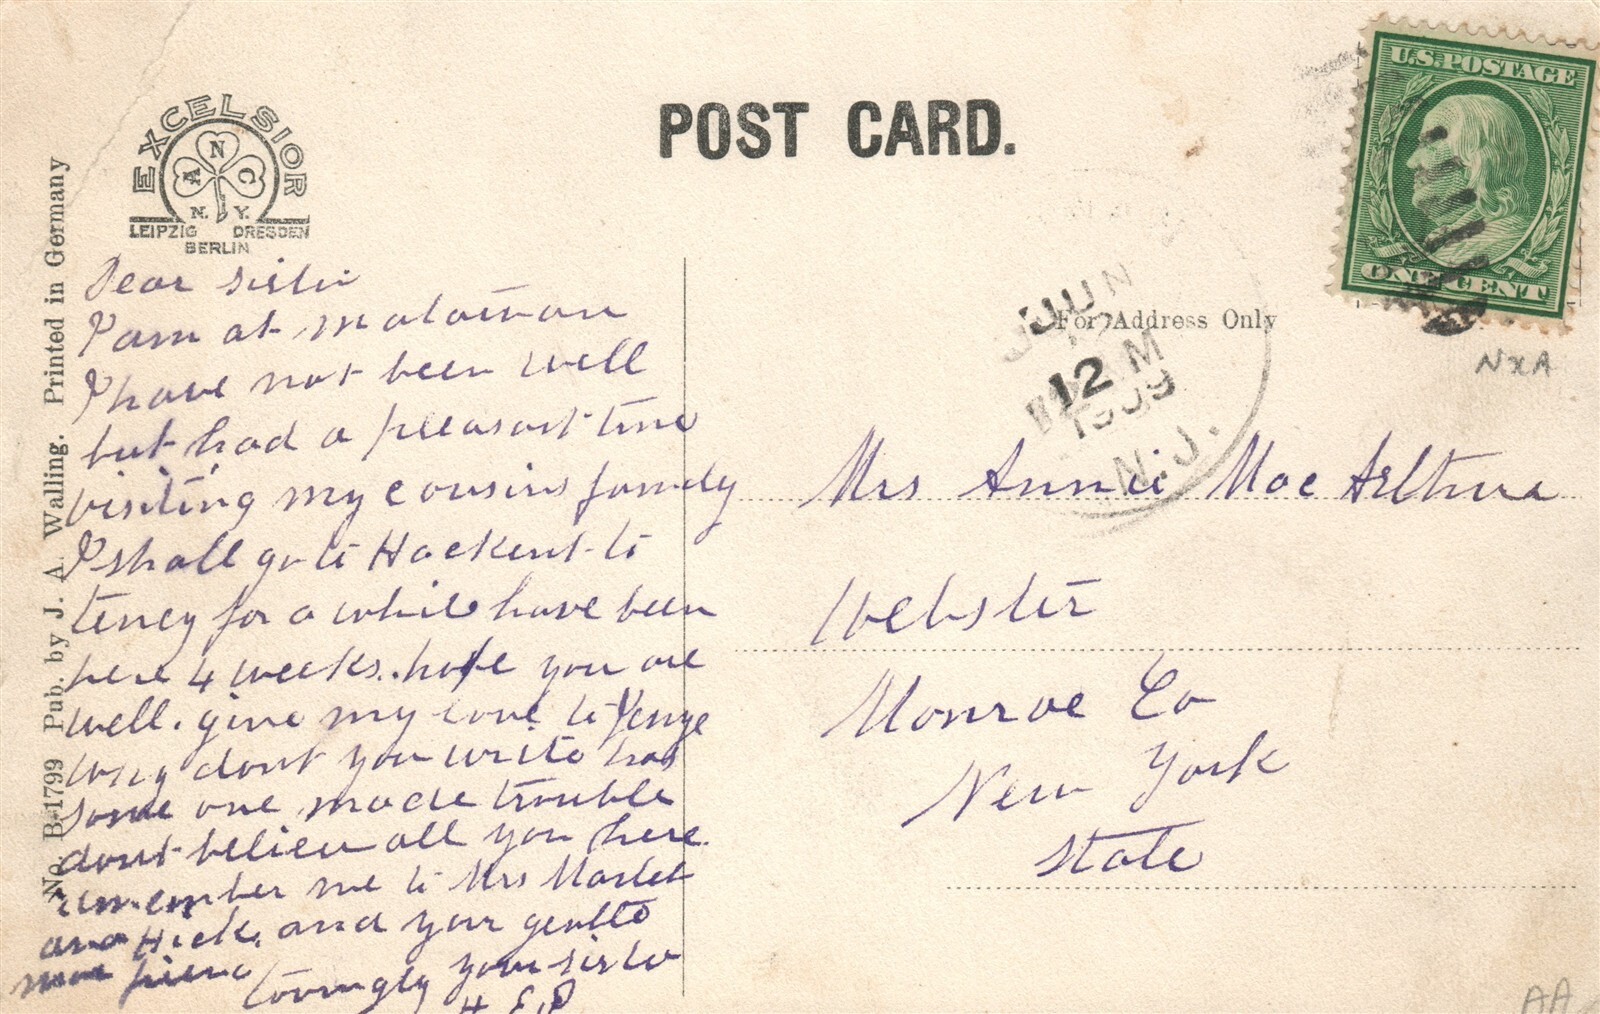 POST CARD.
EXCELSIOR
A N C
N. Y.
LEIPZIG DRESDEN
BERLIN
No. B-1799 Pub. by J. A. Walling. Printed in Germany
U.S. POSTAGE
ONE CENT
For Address Only
JUN
12 M
1909
N.J.
NxA
Dear sister
I am at matawan
I have not been well
but had a pleasant time
visiting my cousins family
I shall go to Hackent to
teney for a while have been
here 4 weeks. hope you are
well. give my love to
why dont you write has
some one made trouble
dont believe all you here
remember me to Mrs
and Hick. and your gentle
man friend
Lovingly your sister
H. E. P
Mrs Annie Mac Arthur
Webster
Monroe Co
New York
State
AA